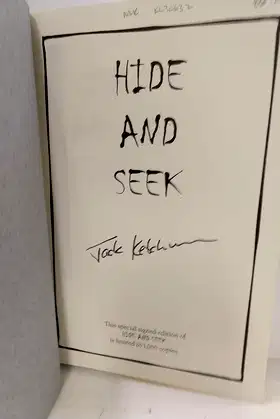 HIDE
AND
SEEK
Jack Ketchum
This special signed edition of
HIDE AND SEEK
is limited to 1,000 copies